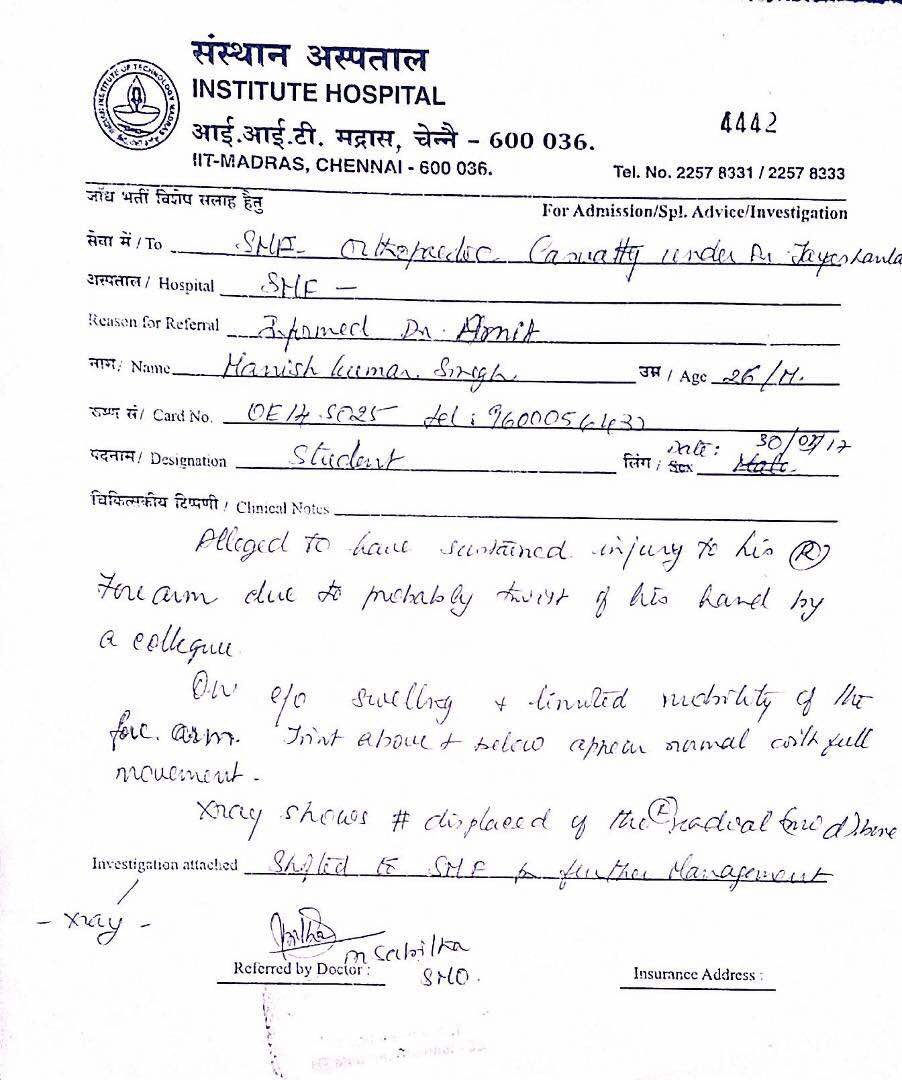 संस्थान अस्पताल
INSTITUTE HOSPITAL
आई.आई.टी. मद्रास, चेन्नै - 600 036.
IIT-MADRAS, CHENNAI - 600 036.
4442
Tel. No. 2257 8331 / 2257 8333
जाँच भर्ती विशेष सलाह हेतु
For Admission/Spl. Advice/Investigation
सेवा में / To Orthopaedic Casualty under Dr
अस्पताल / Hospital SMF -
Reason for Referral Informed Dr. Amit
नाम / Name Manish Kumar Singh उम्र / Age 26/M.
रुग्ण सं/ Card No. OE17.S025 tel :
Date: 30/
पदनाम / Designation Student लिंग / Sex Male
चिकित्सकीय टिप्पणी / Clinical Notes
Alleged to have sustained injury to his (R)
Forearm due to probably twist of his hand by
a collegue.
On e/o swelling + limited mobility of the
fore arm. Joint above + below appear normal with full
movement.
Xray shows # displaced of the radial bone
Investigation attached Shifted to SMF for further Management
- Xray -
M Sabitha
Referred by Doctor : SMO.
Insurance Address :